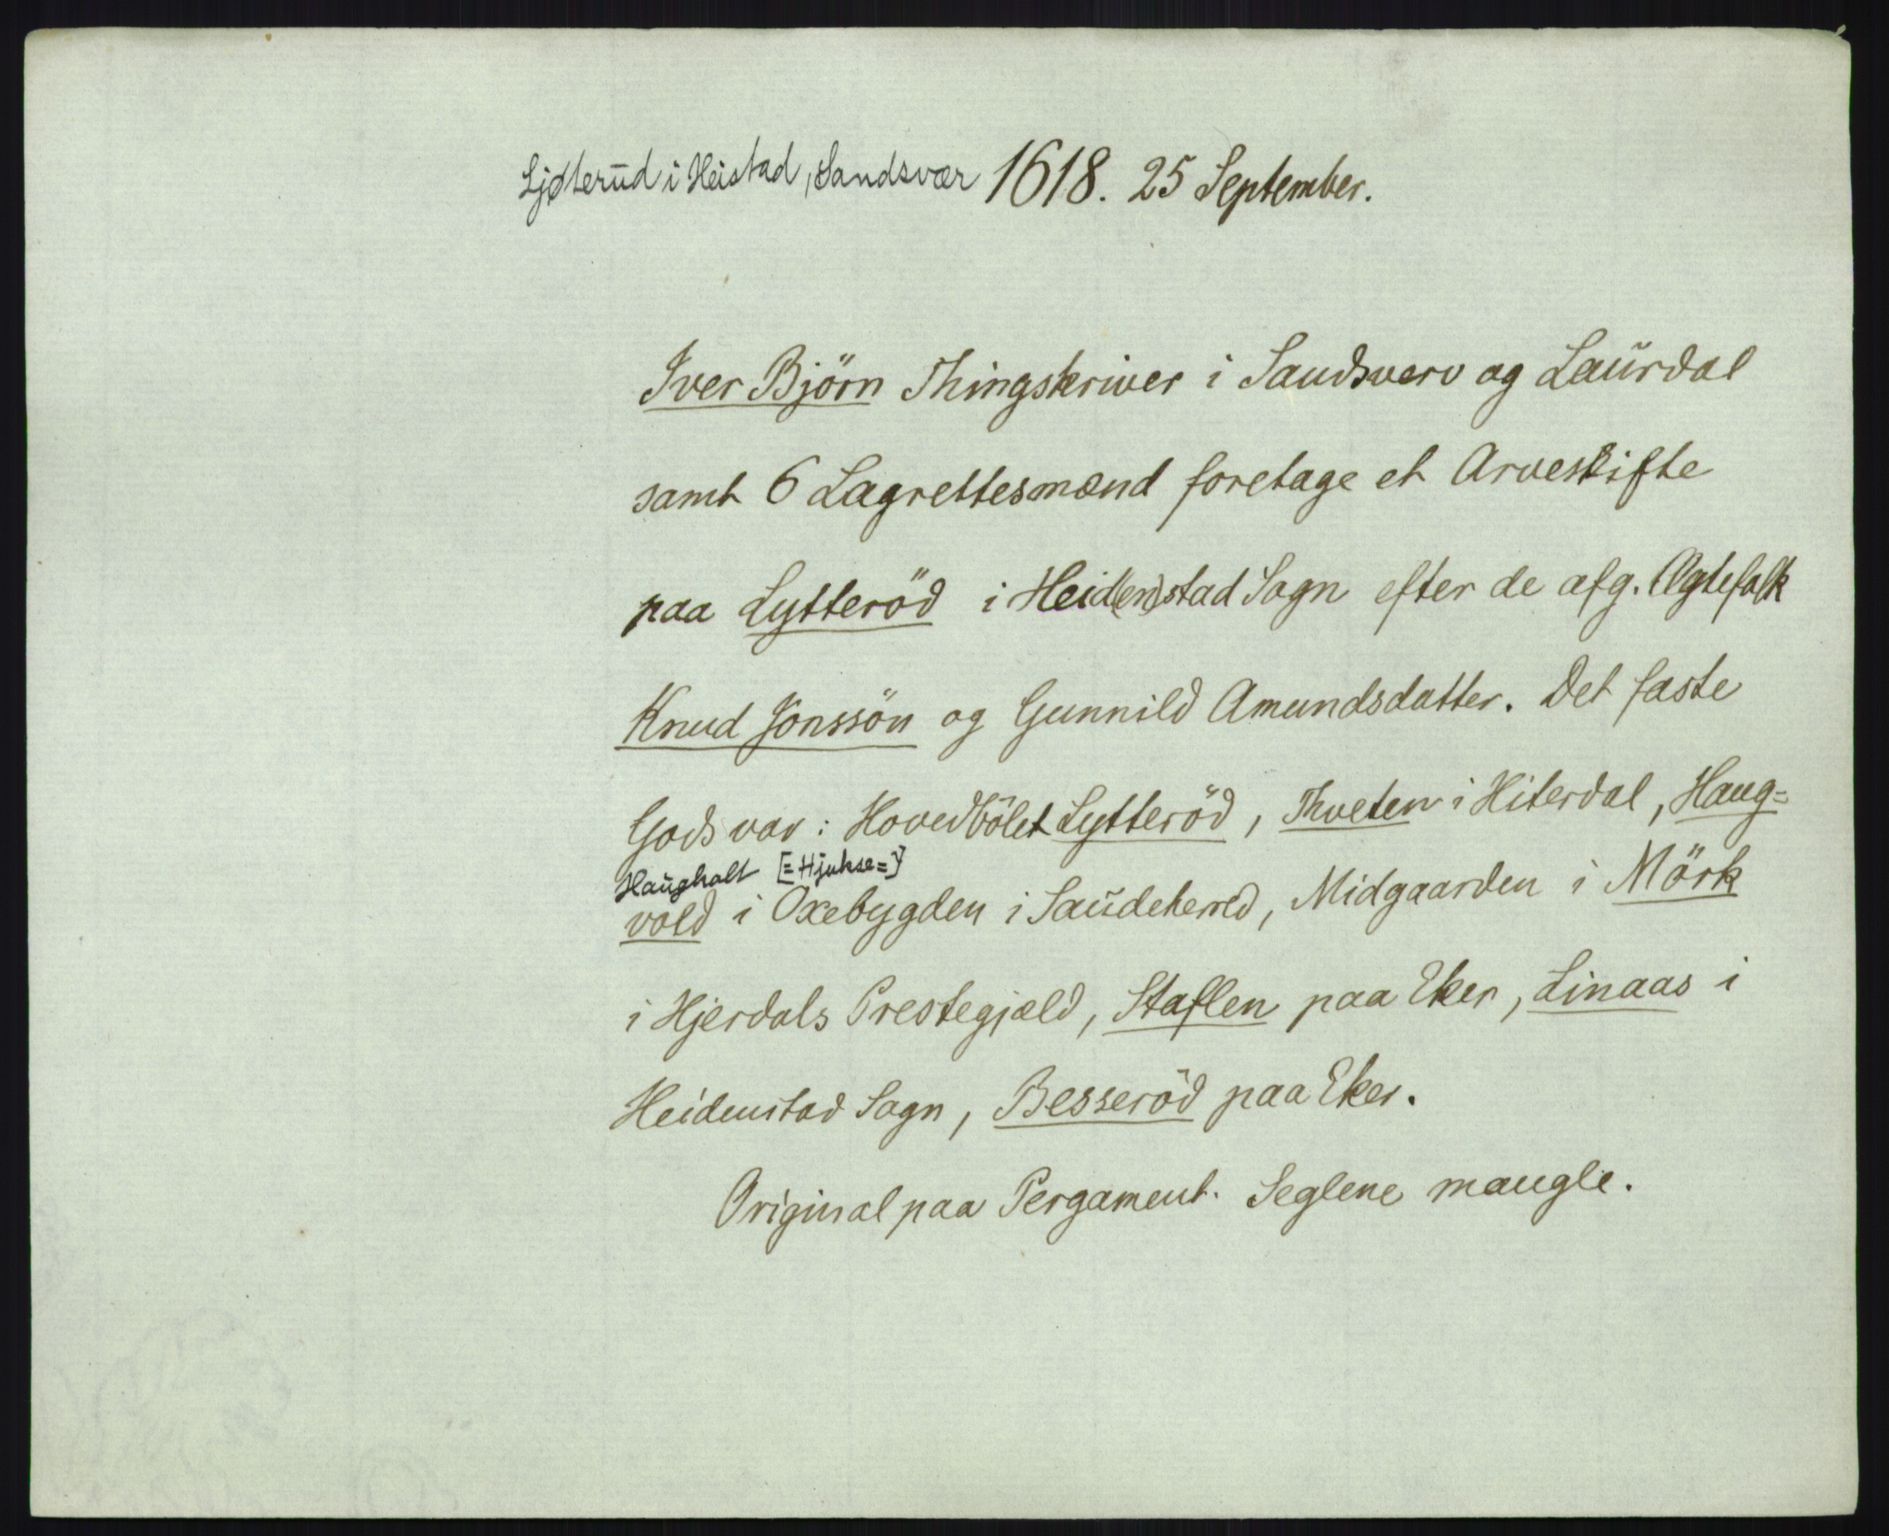 Ljøterud i Heistad, Sandsvær 1618. 25 September.
Iver Björn Thingskriver i Sandsverv og Laurdal
samt 6 Lagrettesmænd foretage et Arveskifte
paa Lytteröd i Heid(en)stad Sogn efter de afg. Ægtefolk
Knud Jonssön og Gunnild Amundsdatter. Det faste
Gods var: Hovedbölet Lytteröd, Thveten i Hiterdal, Haug=
Haughalt [=Hjukse=]
vold i Oxebygden i Saudeherred, Midgaarden i Mörk
i Hjerdals Prestegjæld, Staflen paa Eker, Linaas i
Heidenstad Sogn, Besseröd paa Eker.
Original paa Pergament. Seglene mangle.